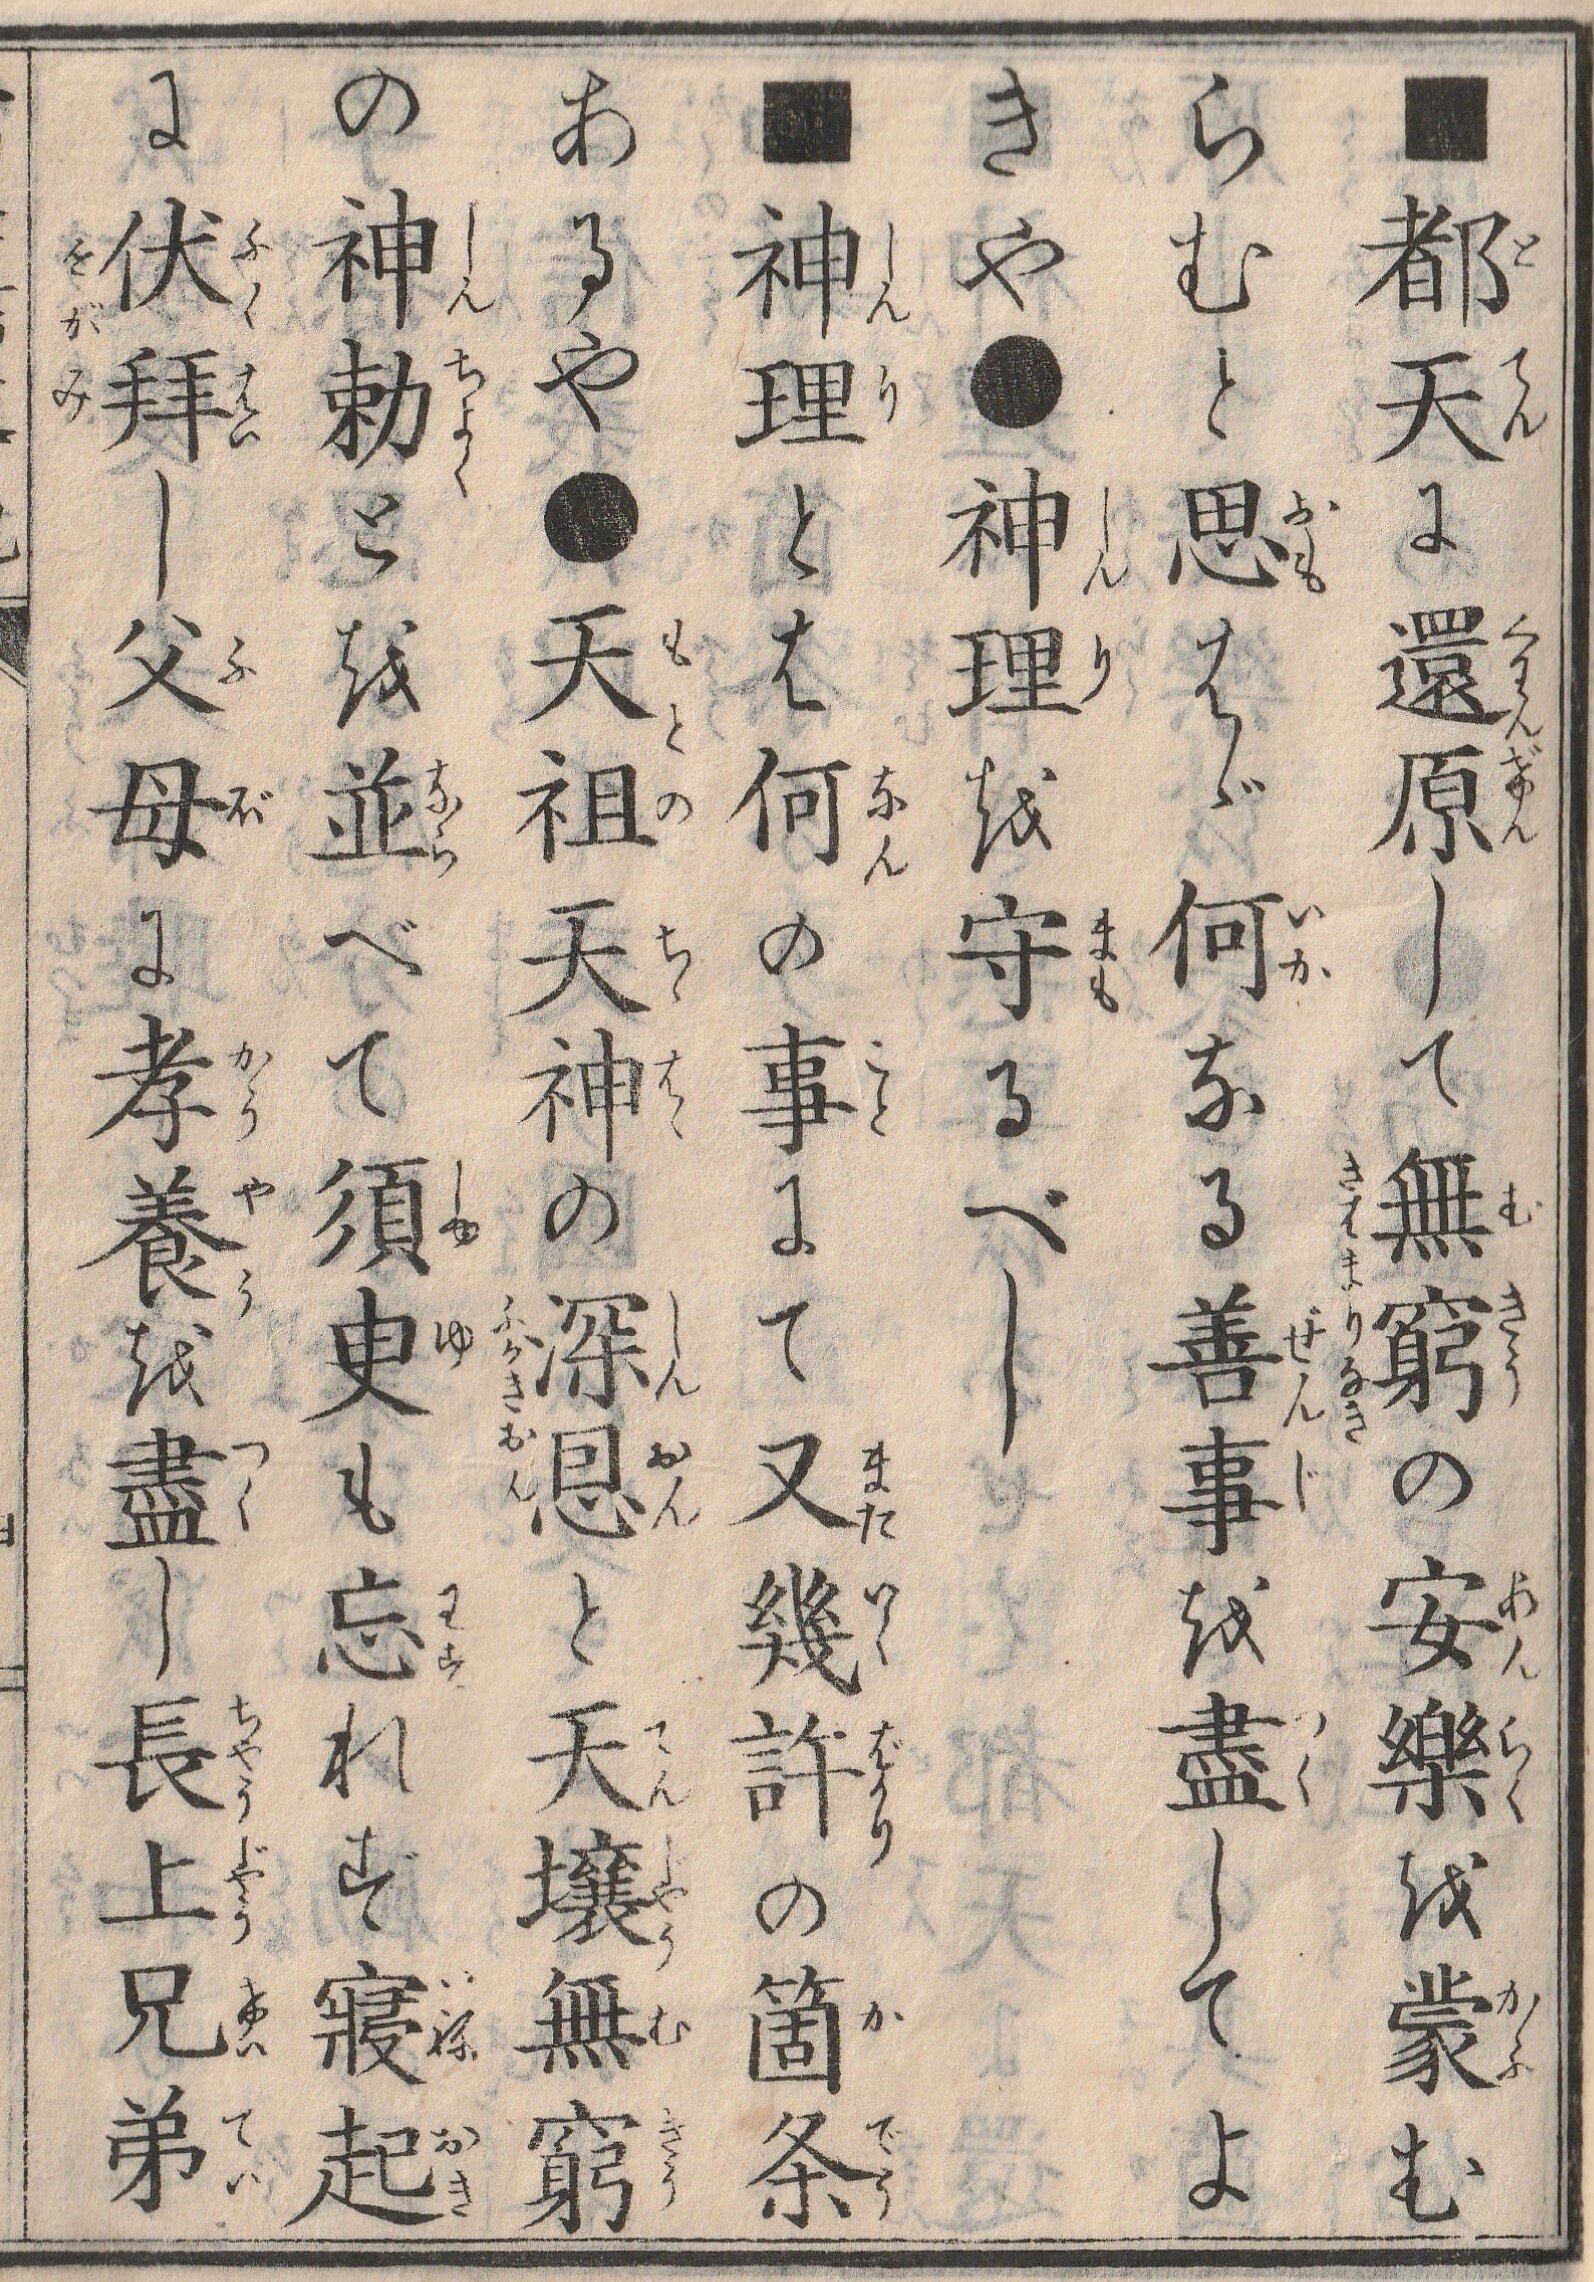 ■都天に還原して無窮の安樂を蒙む
らむと思はゞ何なる善事を盡してよ
きや●神理を守るべし
■神理とは何の事にて又幾許の箇条
あるや●天祖天神の深恩と天壌無窮
の神勅とを並べて須臾も忘れず寢起
に伏拜し父母に孝養を盡し長上兄弟